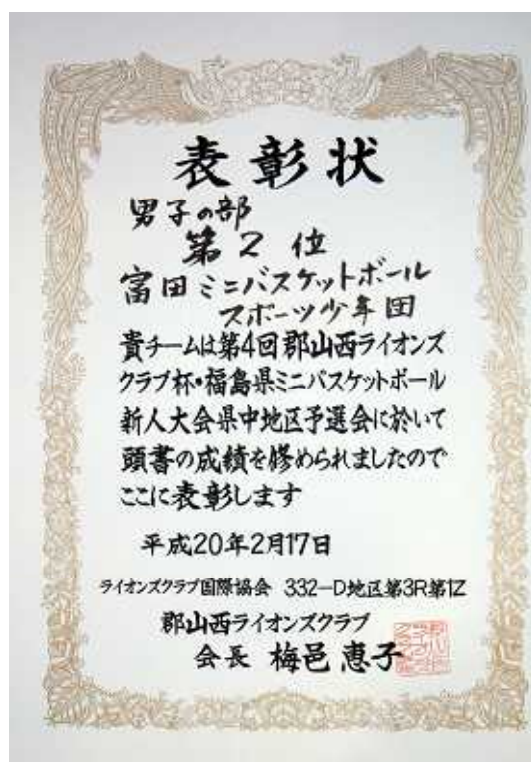 表彰状
男子の部
第2位
富田ミニバスケットボール
スポーツ少年団
貴チームは第4回郡山西ライオンズ
クラブ杯・福島県ミニバスケットボール
新人大会県中地区予選会に於いて
頭書の成績を修められましたので
ここに表彰します
平成20年2月17日
ライオンズクラブ国際協会 332-D地区第3R第1Z
郡山西ライオンズクラブ
会長 梅邑恵子